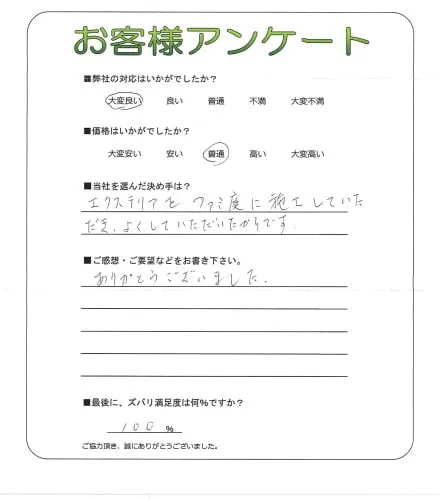 お客様アンケート
■弊社の対応はいかがでしたか？
大変良い 良い 普通 不満 大変不満
■価格はいかがでしたか？
大変安い 安い 普通 高い 大変高い
■当社を選んだ決め手は？
エクステリアを 度に施工していた
だき、よくしていただいたからです。
■ご感想・ご要望などをお書き下さい。
ありがとうございました。
■最後に、ズバリ満足度は何％ですか？
100 ％
ご協力頂き、誠にありがとうございました。